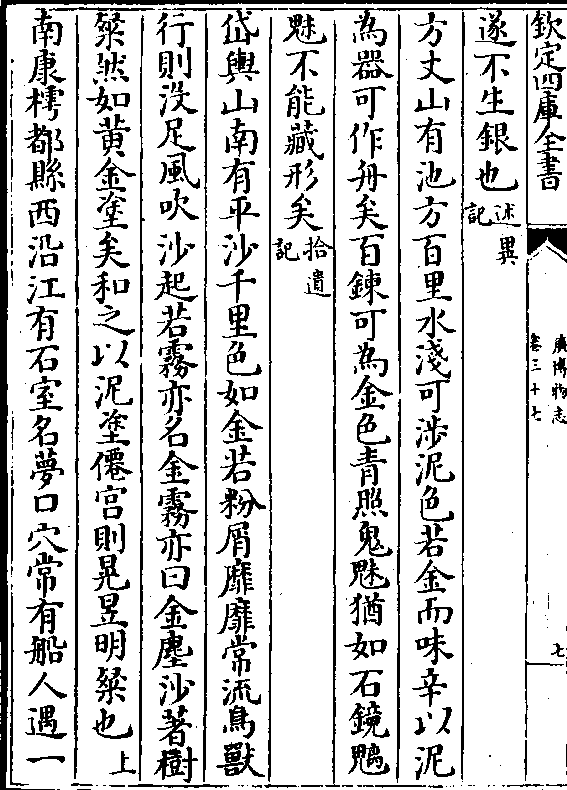 欽定四庫全書
廣博物志
卷三十七
七
遂不生銀也述異記
方丈山有池方百里水淺可涉泥色若金而味辛以泥
為器可作舟矣百鍊可為金色青照鬼魅猶如石鏡魑
魅不能藏形矣拾遺記
岱輿山南有平沙千里色如金若粉屑靡靡常流鳥獸
行則没足風吹沙起若霧亦名金霧亦曰金塵沙著樹
粲然如黄金塗矣和之以泥塗僊宮則晃昱明粲也上
南康樗都縣西沿江有石室名夢口穴常有船人遇一